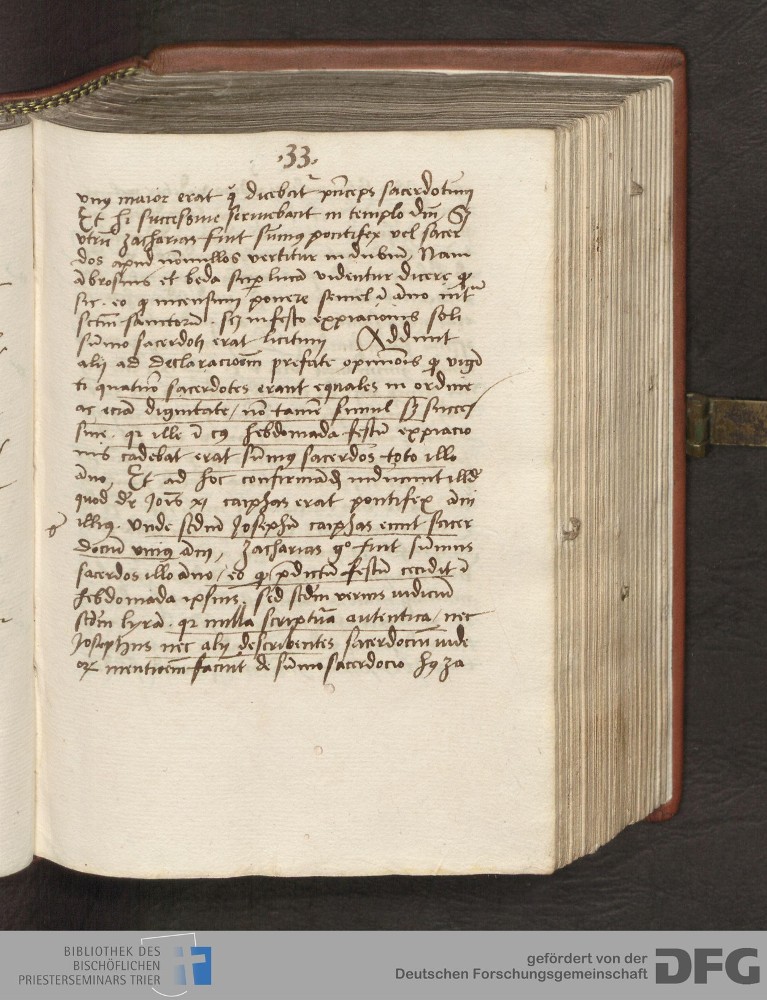 .33.
vnus maior erat q̄ dicebat᷑ prīceps sacerdotum
Et hi successiue seruiebant in templo dn̄i, Sʒ
vtrū zacharias fuit sūmus pontifex vel sacer
dos apud nōnullos vertitur in dubiū, Nam
ābrosius et beda sup lucā videntur dicere ꝙ
sic. eo ꝙ incensum ponere semel ī āno int᷑
sctūm sanctorū. sʒ in festo expiacionis soli
sūmo sacerdoti erat licitum Addunt
alij ad declaracionem prefate opinionis ꝙ vigī
ti quatuor sacerdotes erant equales in ordine
ac eciā dignitate, nō tamē simul sʒ succes
siue. qr ille ī cuius hebdomada festū expiacio
nis cadebat erat sūmus sacerdos toto illo
āno, Et ad hoc confirmandū inducunt illud
quod dr̄ Jōis xj caiphas erat pontifex āni
illius. Vnde scdm̄ Josephū caiphas emit sacer
dociū vnius āni, zacharias gͦ fuit sūmus
sacerdos illo āno, eo ꝙ p̄dictū festū cecidit ī
hebdomada ipsius. Sed scdm̄ verius iudiciū
scdm̄ lyrā. qr nulla scriptura autentica, nec
Josephus nec alij describentes sacerdociū iude
oꝝ mentionem faciunt de sūmo sacerdocio hꝰ za
BIBLIOTHEK DES
BISCHÖFLICHEN
PRIESTERSEMINARS TRIER
gefördert von der
Deutschen Forschungsgemeinschaft
DFG